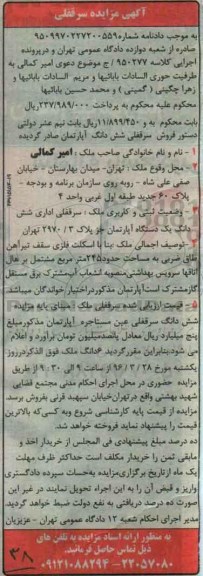 آگهی مزایده سرقفلی
به موجب دادنامه شماره ۹۵۰۹۹۷۰۲۲۷۲۰۰۵۵۹
صادره از شعبه دوازده دادگاه عمومی تهران و درپرونده
اجرایی کلاسه ۹۵۰۲۷۷ / ج موضوع دعوی امیر کمالی به
طرفیت حوری السادات باباثیها و مریم السادات باباثیها و
زهرا چگینی ( گمینی ) و محمد حسین باباثیها
محکوم علیه محکوم به پرداخت ۲۳۷/۹۸۹/۰۰۰ریال
بابت محکوم به و ۱۱/۸۹۹/۴۵۰ریال بابت نیم عشر دولتی
دستور فروش سرقفلی شش دانگ آپارتمان صادر گردیده
۱ - نام و نام خانوادگی صاحب ملک : امیر کمالی
۲ - محل وقوع ملک : تهران- میدان بهارستان - خیابان
صفی علی شاه - روبه روی سازمان برنامه و بودجه -
پلاک ۶۰ جدید طبقه اول غربی واحد ۴
۳ - وضعیت ثبتی و کاربری ملک : سرقفلی اداری شش
دانگ یک دستگاه آپارتمان جز پلاک ۳ / ۲۹۷۰ تهران
۴ -توصیف اجمالی ملک :بنا با اسکلت فلزی سقف تیرآهن
طاق ضربی به مساحت حدود۲۴۵متر مربع مشتمل بر هال
اتاقها سرویس بهداشتی‌منصوبه انشعاب آب‌مشترک برق مستقل
گازمشترک است‌آپارتمان مذکوردراختیارخواندگان میباشد
۵ - قیمت ارزیابی شده سرقفلی ملک :مبنای پایه مزایده
شش دانگ سرقفلی عین مستاجره آپارتمان مذکورمبلغ
پنج میلیارد ریال معادل پانصدمیلیون تومان برآورد و اعلام
می شود.بنابراین مقررگردید ۶دانگ ملک فوق الذکردرروز
یکشنبه مورخ ۲۸ / ۳ / ۹۶ از ساعت ۹ الی ۹.۳۰ از طریق
مزایده حضوری در محل اجرای احکام مدنی مجتمع قضایی
شهید بهشتی واقع درتهران‌خیابان سپهبد قرنی بفروش برسد
مزایده از قیمت پایه کارشناسی شروع وبه کسی که بالاترین
قیمت را پیشنهاد نماید فروخته خواهد شد.
ده درصد مبلغ پیشنهادی فی المجلس از خریدار اخذ و
مابقی ثمن را خریدار مکلف است حداکثر ظرف مهلت
یک ماه ازتاریخ برگزاری‌مزایده به‌حساب سپرده دادگستری
واریز و قبض آن را به این اجراء تحویل نمایند در غیر این
صورت ده درصد دریافتی به نفع دولت ضبط خواهد گردید.
مدیر اجرای احکام شعبه ۱۲ دادگاه عمومی تهران - عزیزیان
به منظور ارائه اسناد مزایده به تلفن های
ذیل تماس حاصل فرمائید.
۲۲۰۵۷۰۸۰ - ۰۹۱۲۱۰۸۸۲۹۴
۳۸